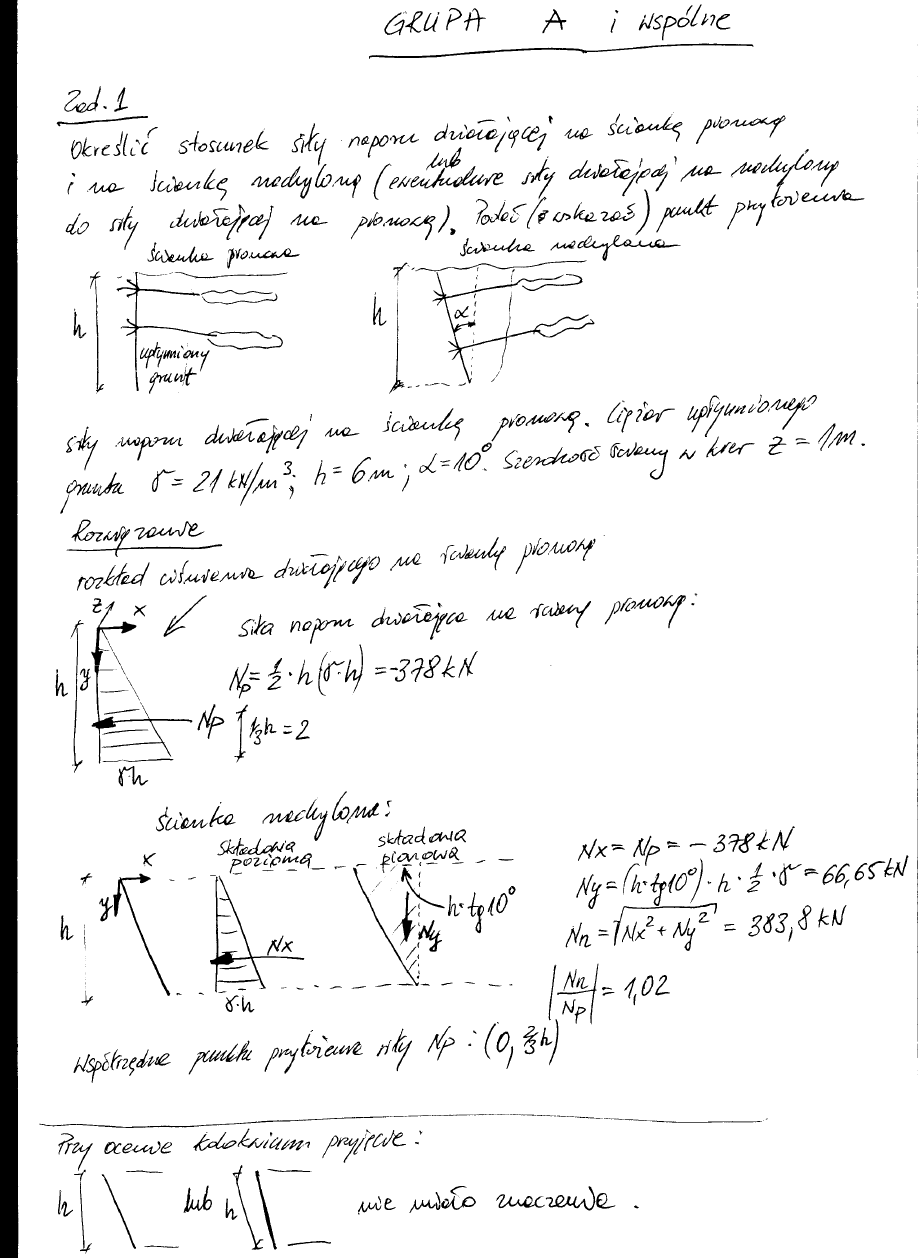 GRUPA A i wspólne
Zad. 1
Określić stosunek siły naporu działającej na ściankę pionową
i na ściankę nachyloną (ewentualnie lub siły działającej na nachyloną
do siły działającej na pionową). Podać (wskazać) punkt przyłożenia
ścianka pionowa
ścianka nachylona
h
upłynniony
grunt
h
α
siły naporu działającej na ściankę pionową. Ciężar upłynnionego
gruntu γ = 21 kN/m³; h = 6m; α = 10°. Szerokość ściany w kier z = 1m.
Rozwiązanie
rozkład ciśnienia działającego na ściankę pionową
z x
y
h
siła naporu działająca na ścianę pionową:
Np = 1/2 · h (γ·h) = -378 kN
Np 1/3 h = 2
γ·h
ścianka nachylona:
składowa
pozioma
składowa
pionowa
x
y
h
Nx
γ·h
h·tg10°
Ny
Nx = Np = - 378 kN
Ny = (h·tg10°) · h · 1/2 · γ = 66,65 kN
Nn = √Nx² + Ny² = 383,8 kN
|Nn/Np| = 1,02
Współrzędne punktu przyłożenia siły Np : (0, 2/3 h)
Przy ocenie kolokwium przyjęcie :
h lub h nie miało znaczenia .